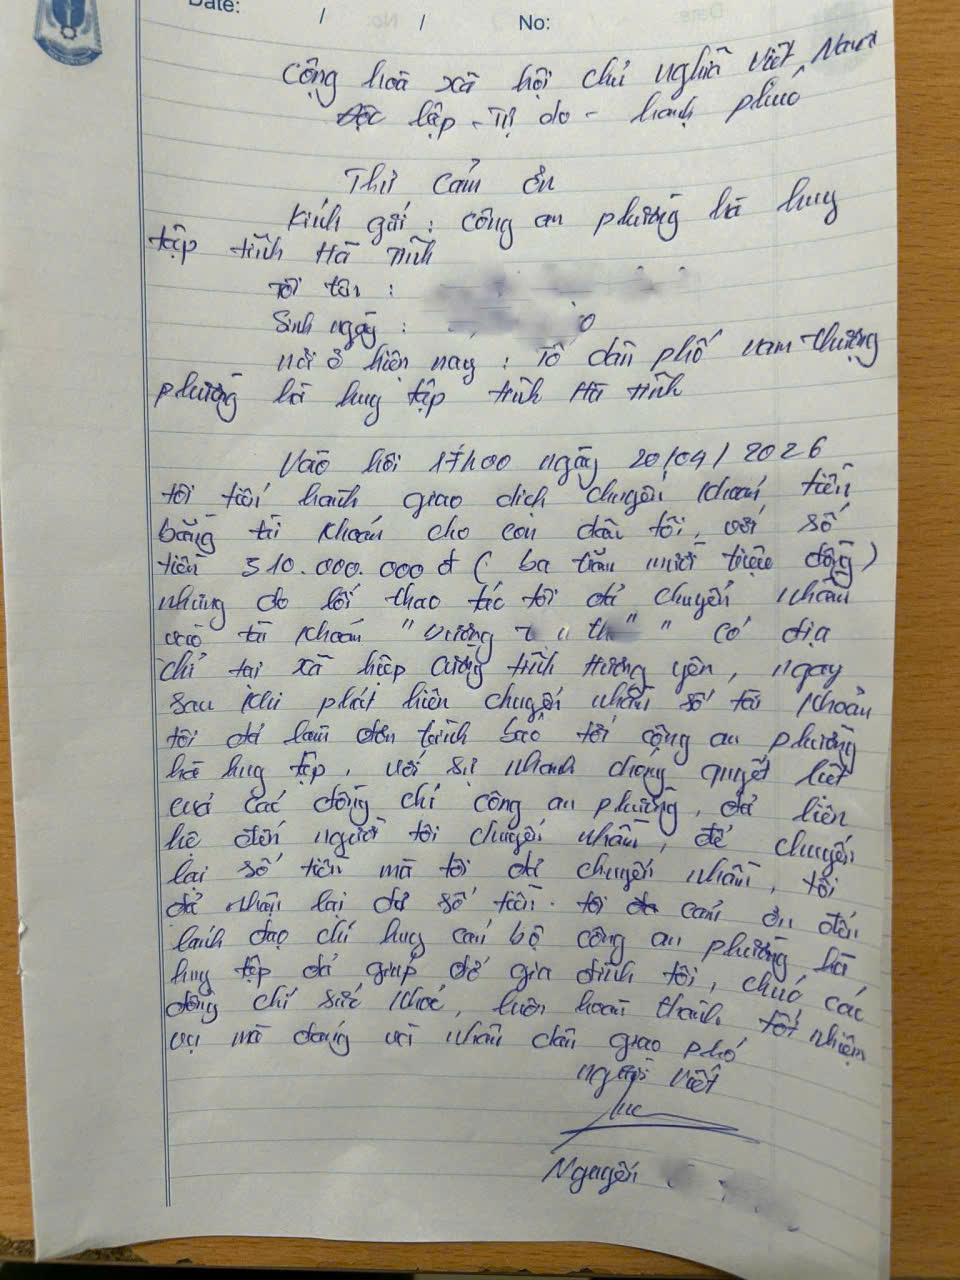 Date: / / No:
Cộng hoà xã hội chủ nghĩa Việt Nam
Độc lập - Tự do - hạnh phúc
Thư cảm ơn
Kính gửi : công an phường hà huy
tập tỉnh Hà Tĩnh
Tôi tên :
Sinh ngày : 0
nơi ở hiện nay : Tổ dân phố nam thượng
phường hà huy tập tỉnh Hà Tĩnh
Vào hồi 17h00 ngày 20/04/2026
tôi tiến hành giao dịch chuyển khoản tiền
bằng tài khoản cho con dâu tôi, với số
tiền 310.000.000 đ ( ba trăm mười triệu đồng)
nhưng do lỗi thao tác tôi đã chuyển nhầm
vào tài khoản "Vương " có địa
chỉ tại xã hiệp cường tỉnh Hương yên, ngay
sau khi phát hiện chuyển nhầm số tài khoản
tôi đã làm đơn trình báo tới công an phường
hà huy tập, với sự nhanh chóng quyết liệt
của các đồng chí công an phường, đã liên
hệ đến người tôi chuyển nhầm, để chuyển
lại số tiền mà tôi đã chuyển nhầm, tôi
đã nhận lại đủ số tiền. tôi cảm ơn đến
lãnh đạo chỉ huy cán bộ công an phường hà
huy tập đã giúp đỡ gia đình tôi, chúc các
đồng chí sức khoẻ, luôn hoàn thành tốt nhiệm
vụ mà đảng và nhân dân giao phó
người viết
Nguyễn